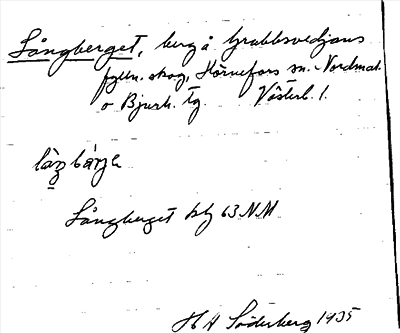 Långberget, berg å Grubbsvedjans
fgln. skog, Hörnefors sn. Nordmal.
o Bjurh. tg. Västerb. l.
Långberget blg 63 NM
H A Söderberg 1935